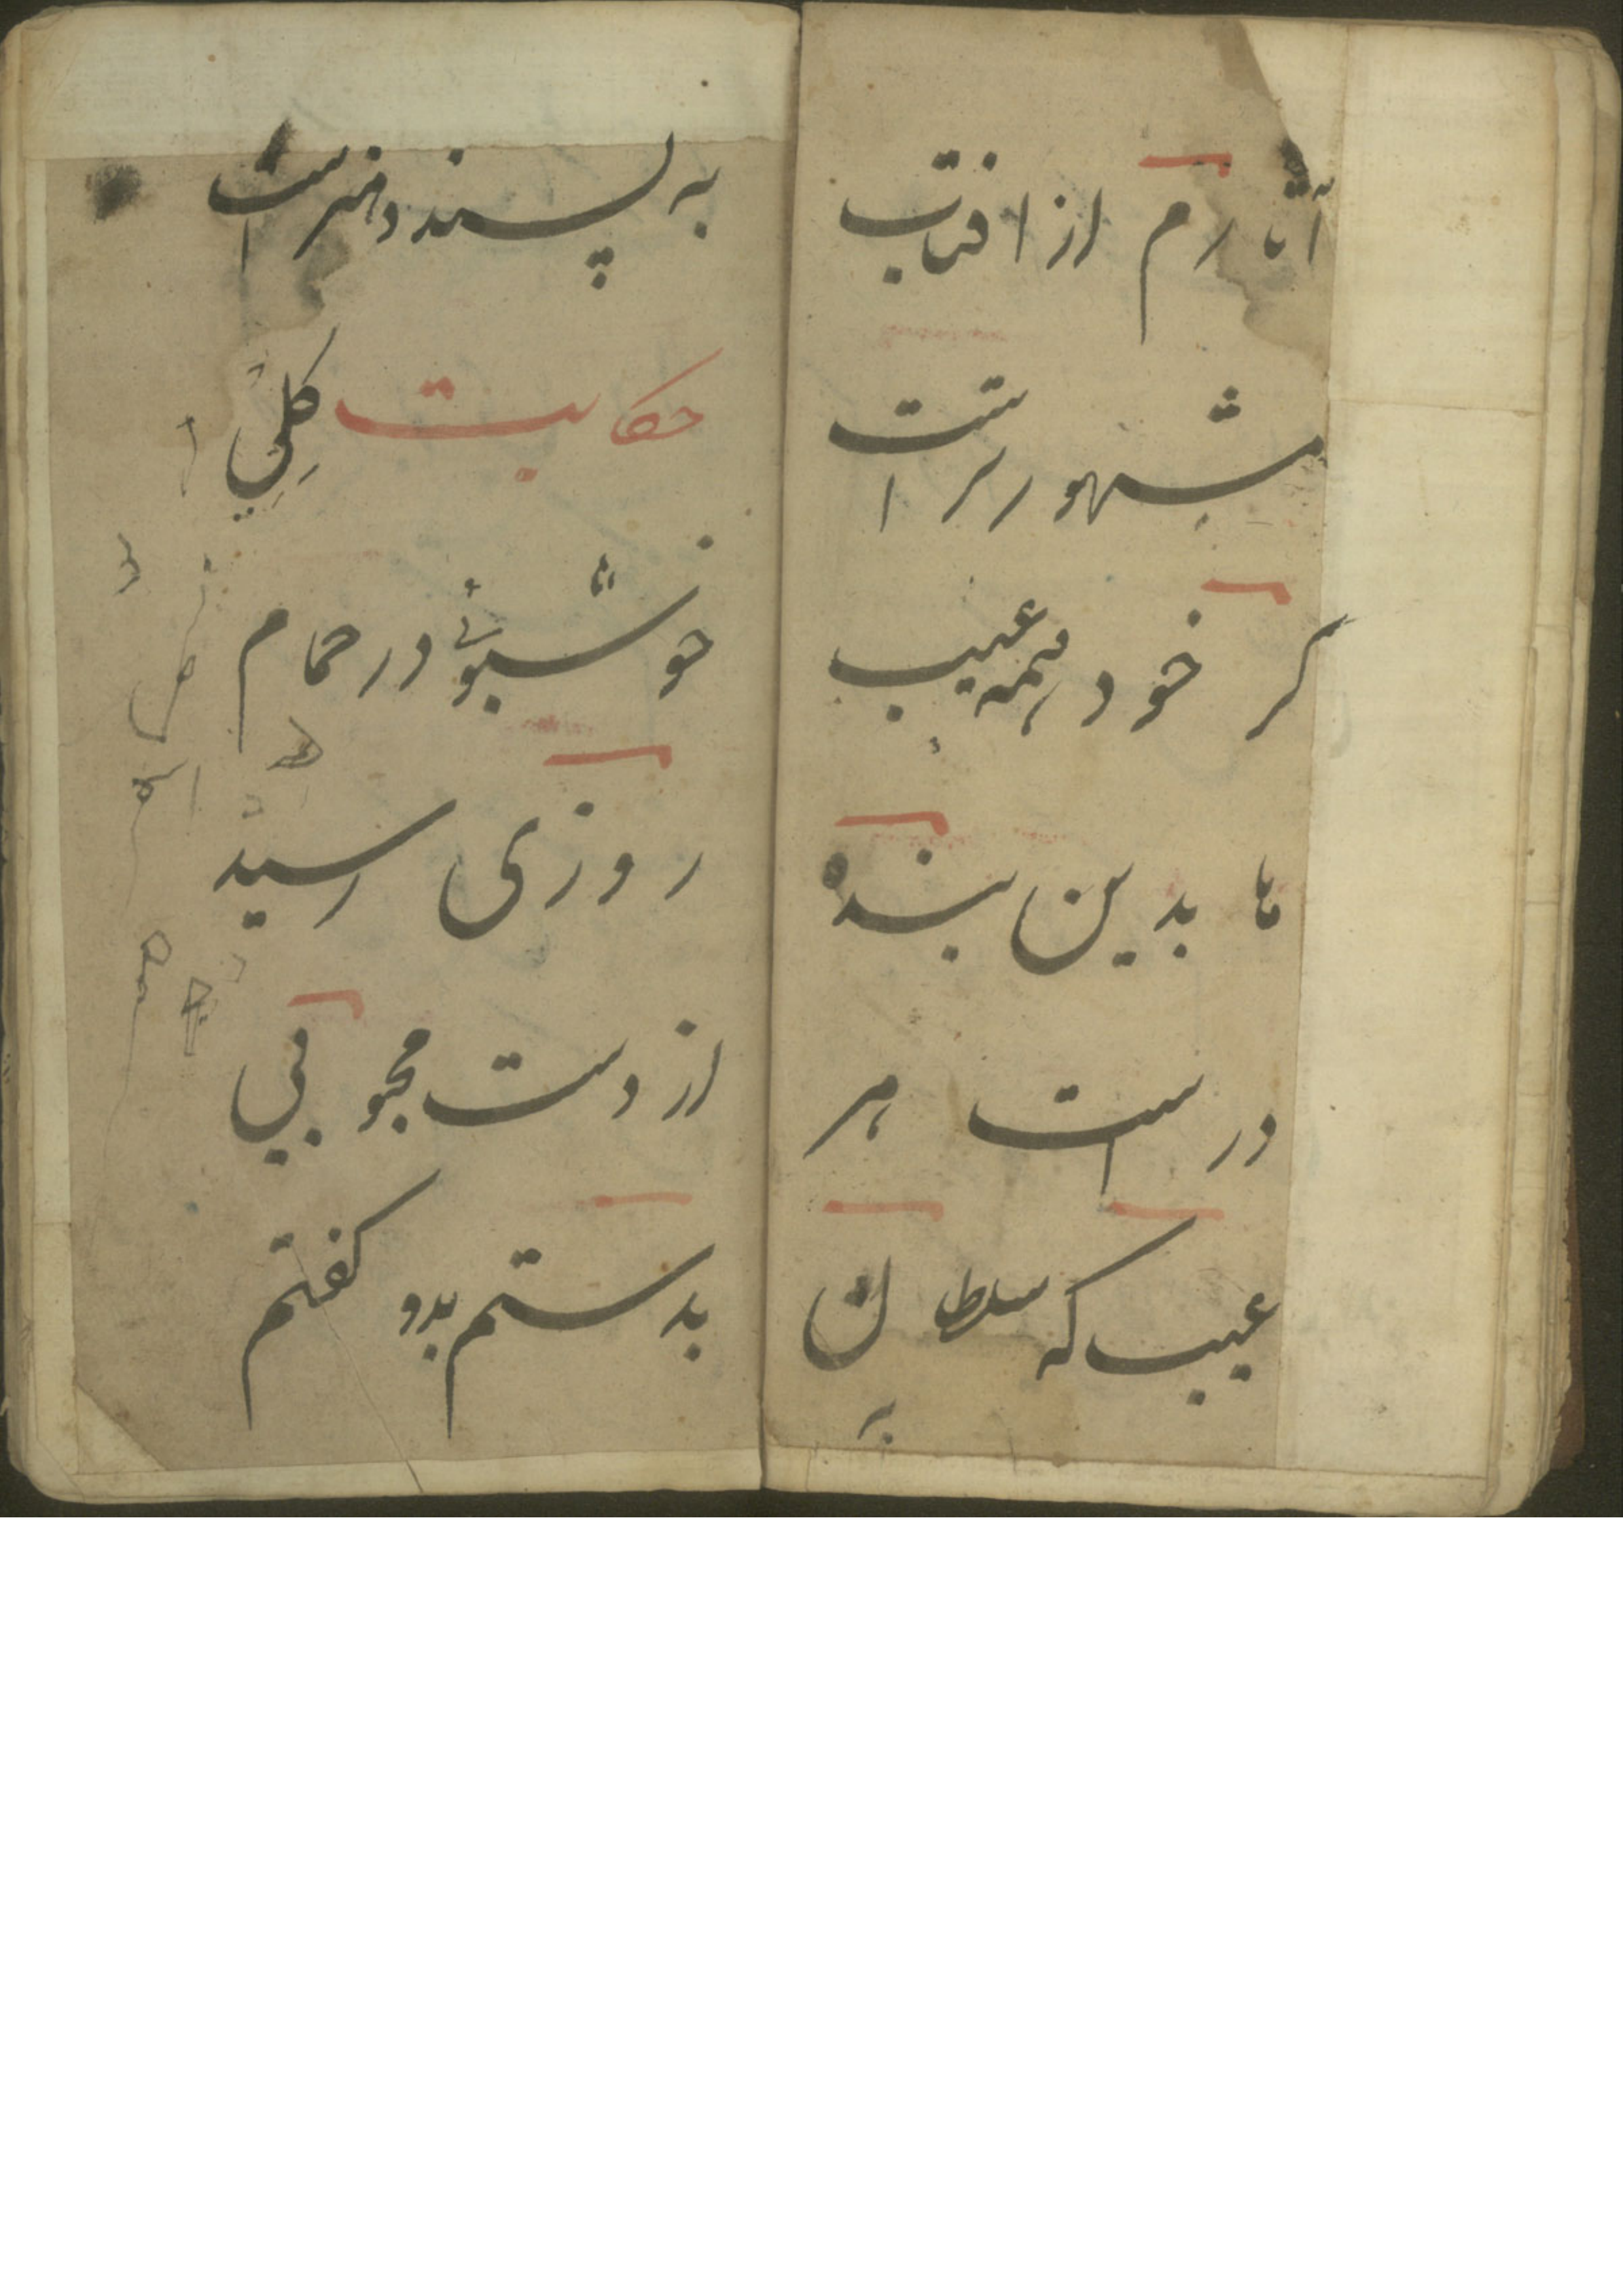 آثارم از افتاب
مشهورترست
کر خود همه عیب
ها بدین بنده
درست هر
عیب که سلطان
به
به پسندد هنرست
حکایت کلی
خوشبوئی در حمام
روزی رسید
از دست محبوبی
بدستم بدو کفتم